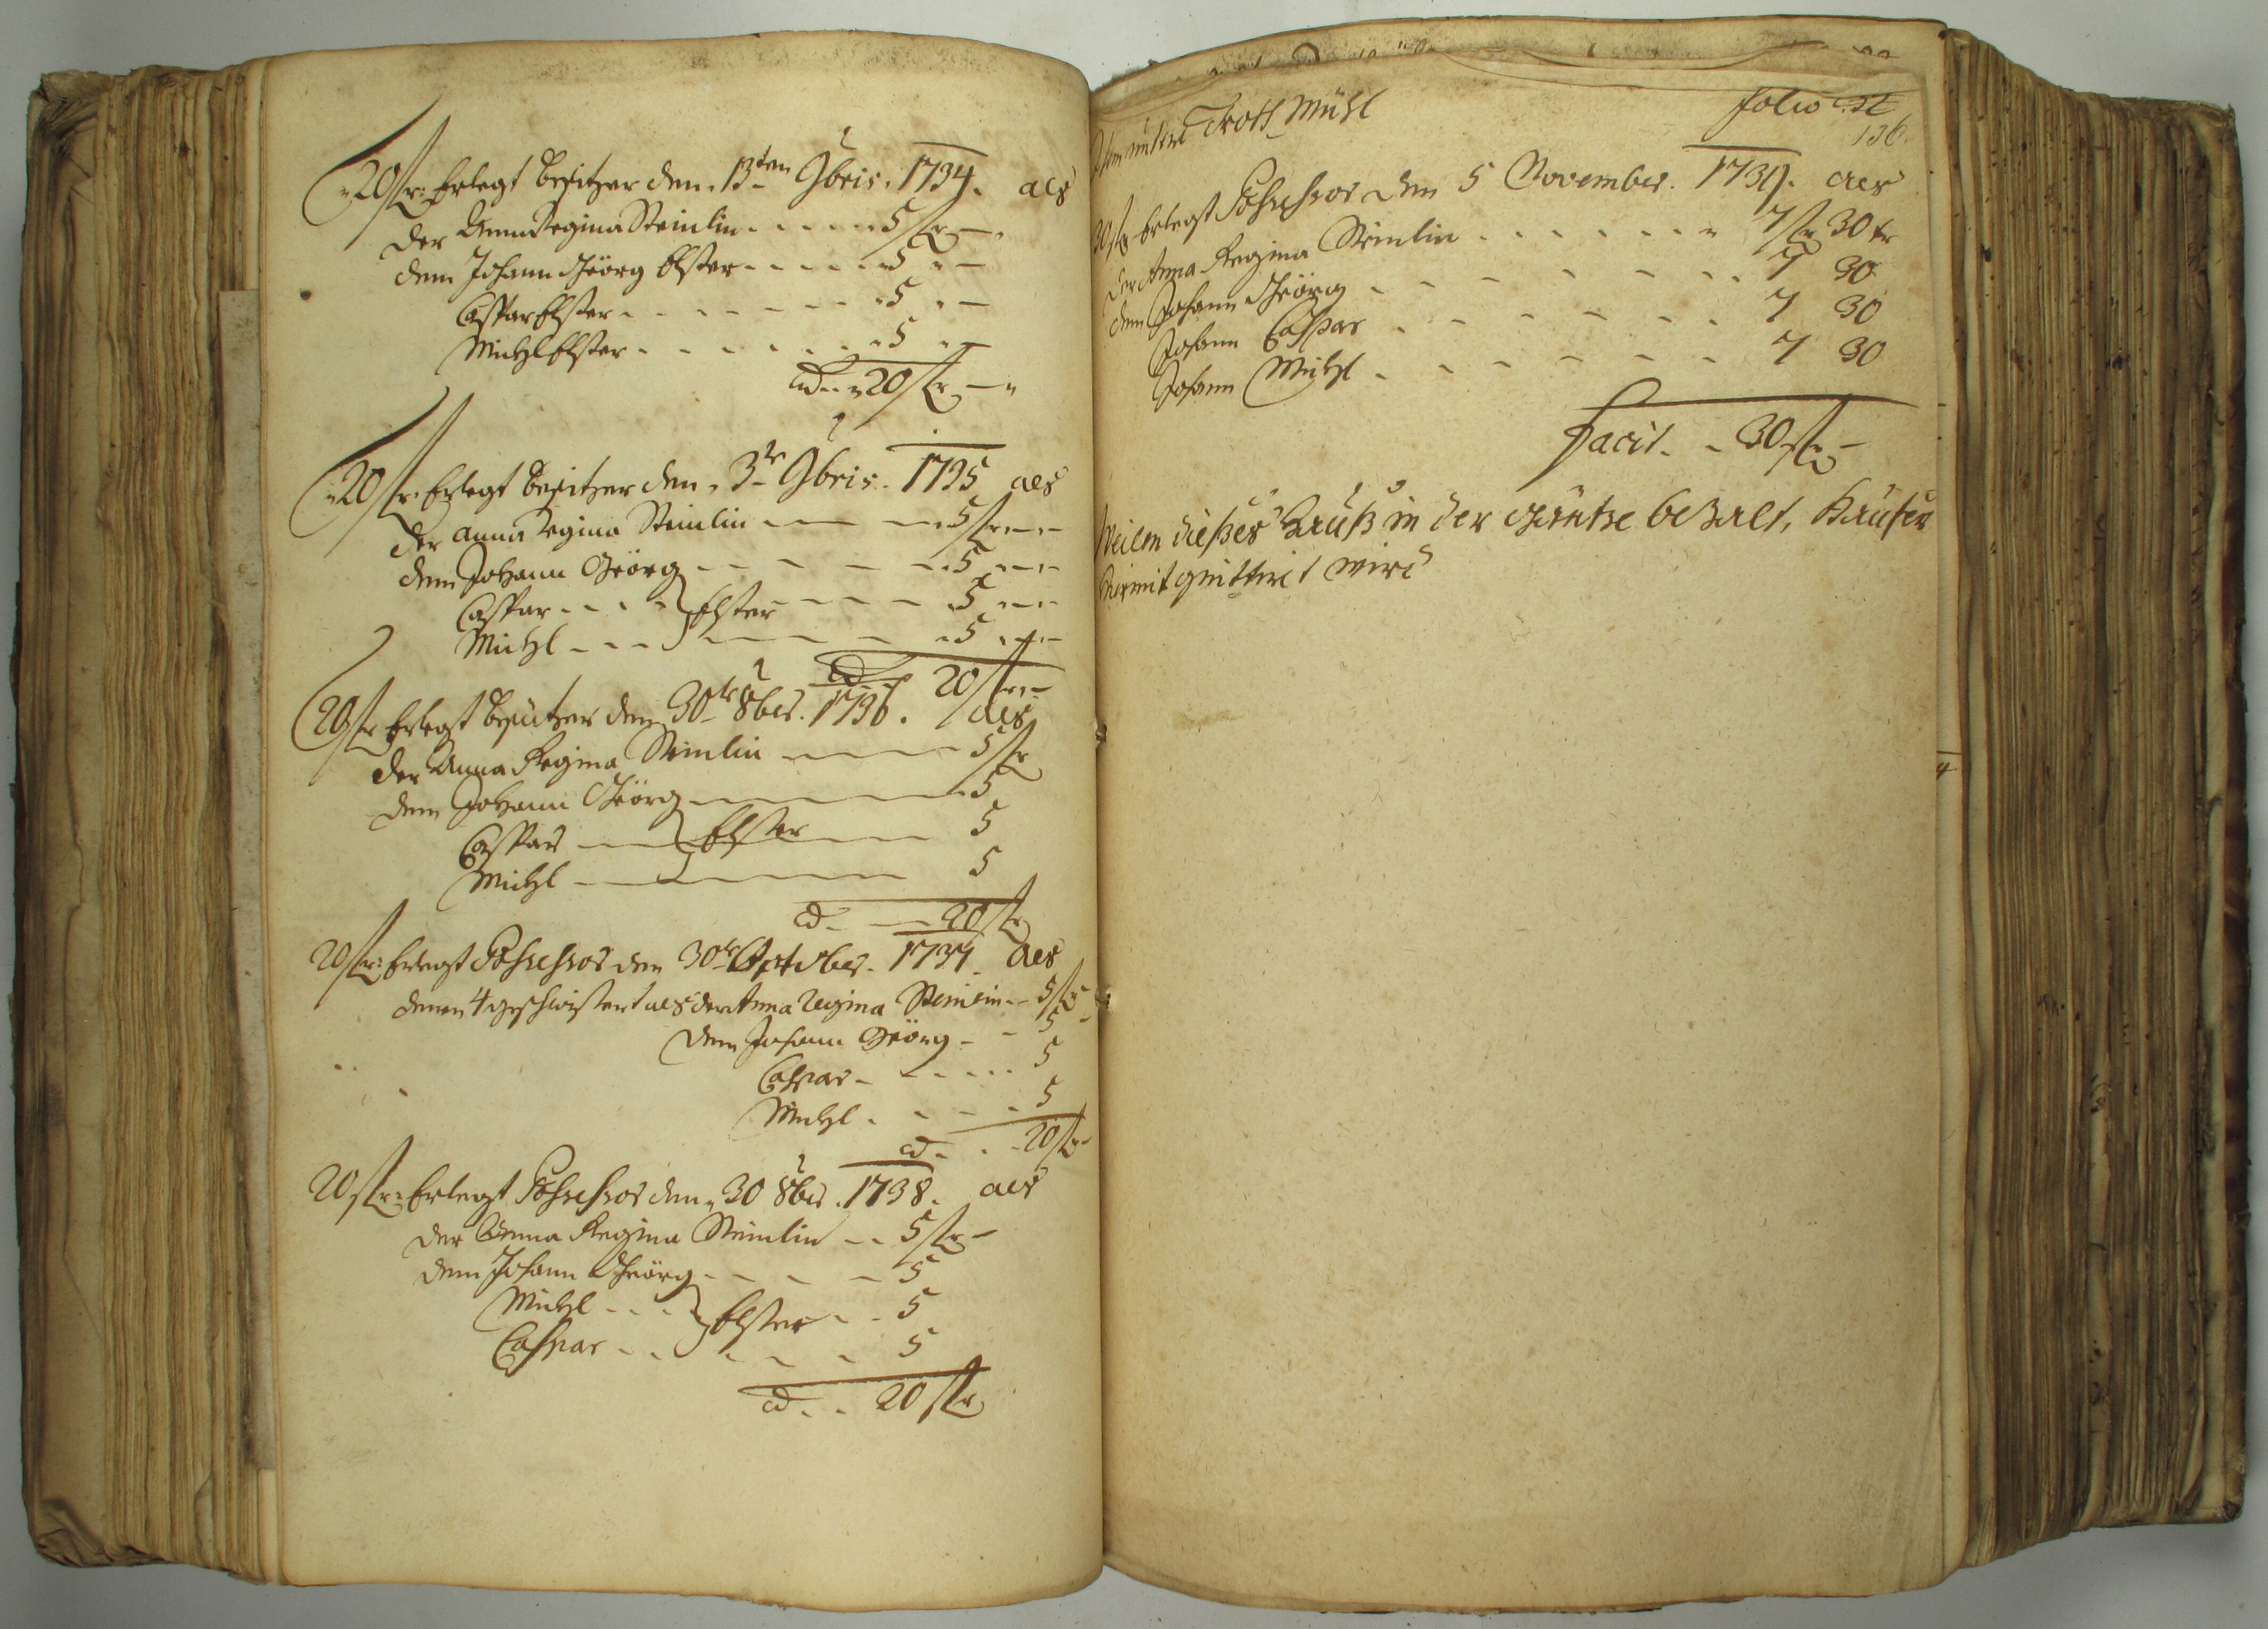 20 fr: Erlegt besitzer den 13ten 9bris. 1734. als
der Anna Regina Steinlin - - - - - 5 fr —
dem Johann Geörg Elster - - - - - 5 " —
Caspar Elster - - - - - - 5 " —
Michl Elster - - - - - - 5 " —
id - - 20 fr —
20 fr. Erlegt besitzer den 3te 9bris. 1735 als
der Anna Regina Steinlin — — 5 fr — —
dem Johann Geörg - - - - - 5 - - -
Caspar - - - - Elster - - - - 5 - - -
Michl - - - - - - - - 5 - - -
id 20 fr - -
20 fr Erlegt besitzer den 30te 8ber. 1736. als
der Anna Regina Steinlin — — 5 fr
dem Johann Geörg — — 5
Caspar — — Elster — — 5
Michl — — — 5
id - — 20 fr
20 fr: Erlegt Possessor den 30te October. 1737. als
denen 4 geschwistert als der Anna Regina Steinlin - - 5 fr
dem Johann Geörg - - 5
Caspar - - - - - 5
Michl - - - - 5
id - - 20 fr
20 fr: Erlegt Possessor den 30 8ber. 1738. als
der Anna Regina Steinlin - - 5 fr -
dem Johann Geörg - - - - 5
Michl - - - Elster - - 5
Caspar - - - - - 5
id - - 20 fr
Trott Mühl folio
136.
30 fr Erlegt Possessor den 5 November. 1739. als
der Anna Regina Steinlin - - - - - - 7 fr 30 kr
dem Johann Geörg - - - - - - 7 30
Johann Caspar - - - - - - 7 30
Johann Michl - - - - - - 7 30
Facit - - 30 fr -
Weilen dießes Hauß in der gäntze bezalt,
hiermit quittiret wird